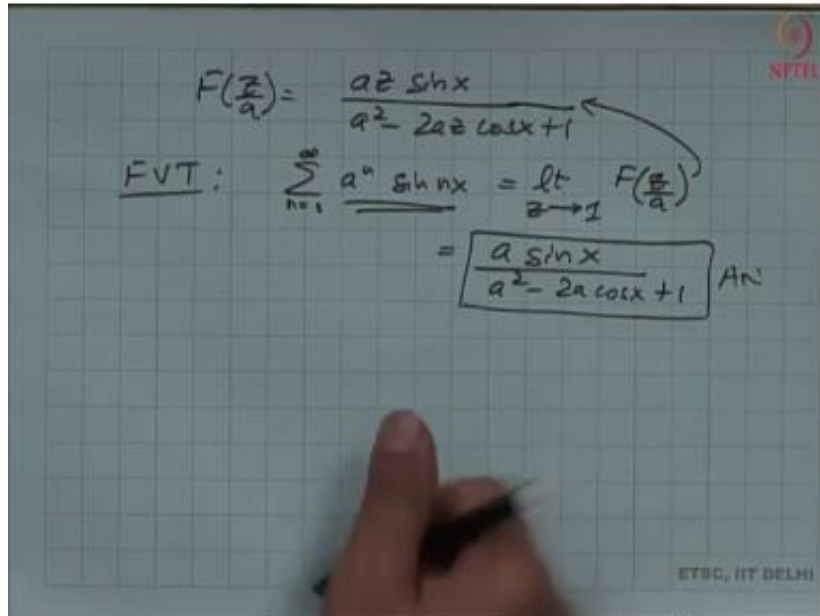 NPTEL
F(z/a) = az sinx / a² - 2az cosx + 1
FVT : ∞ ∑ n=1 aⁿ sin nx = lt z→1 F(z/a)
= a sinx / a² - 2a cosx + 1 An
ETSC, IIT DELHI